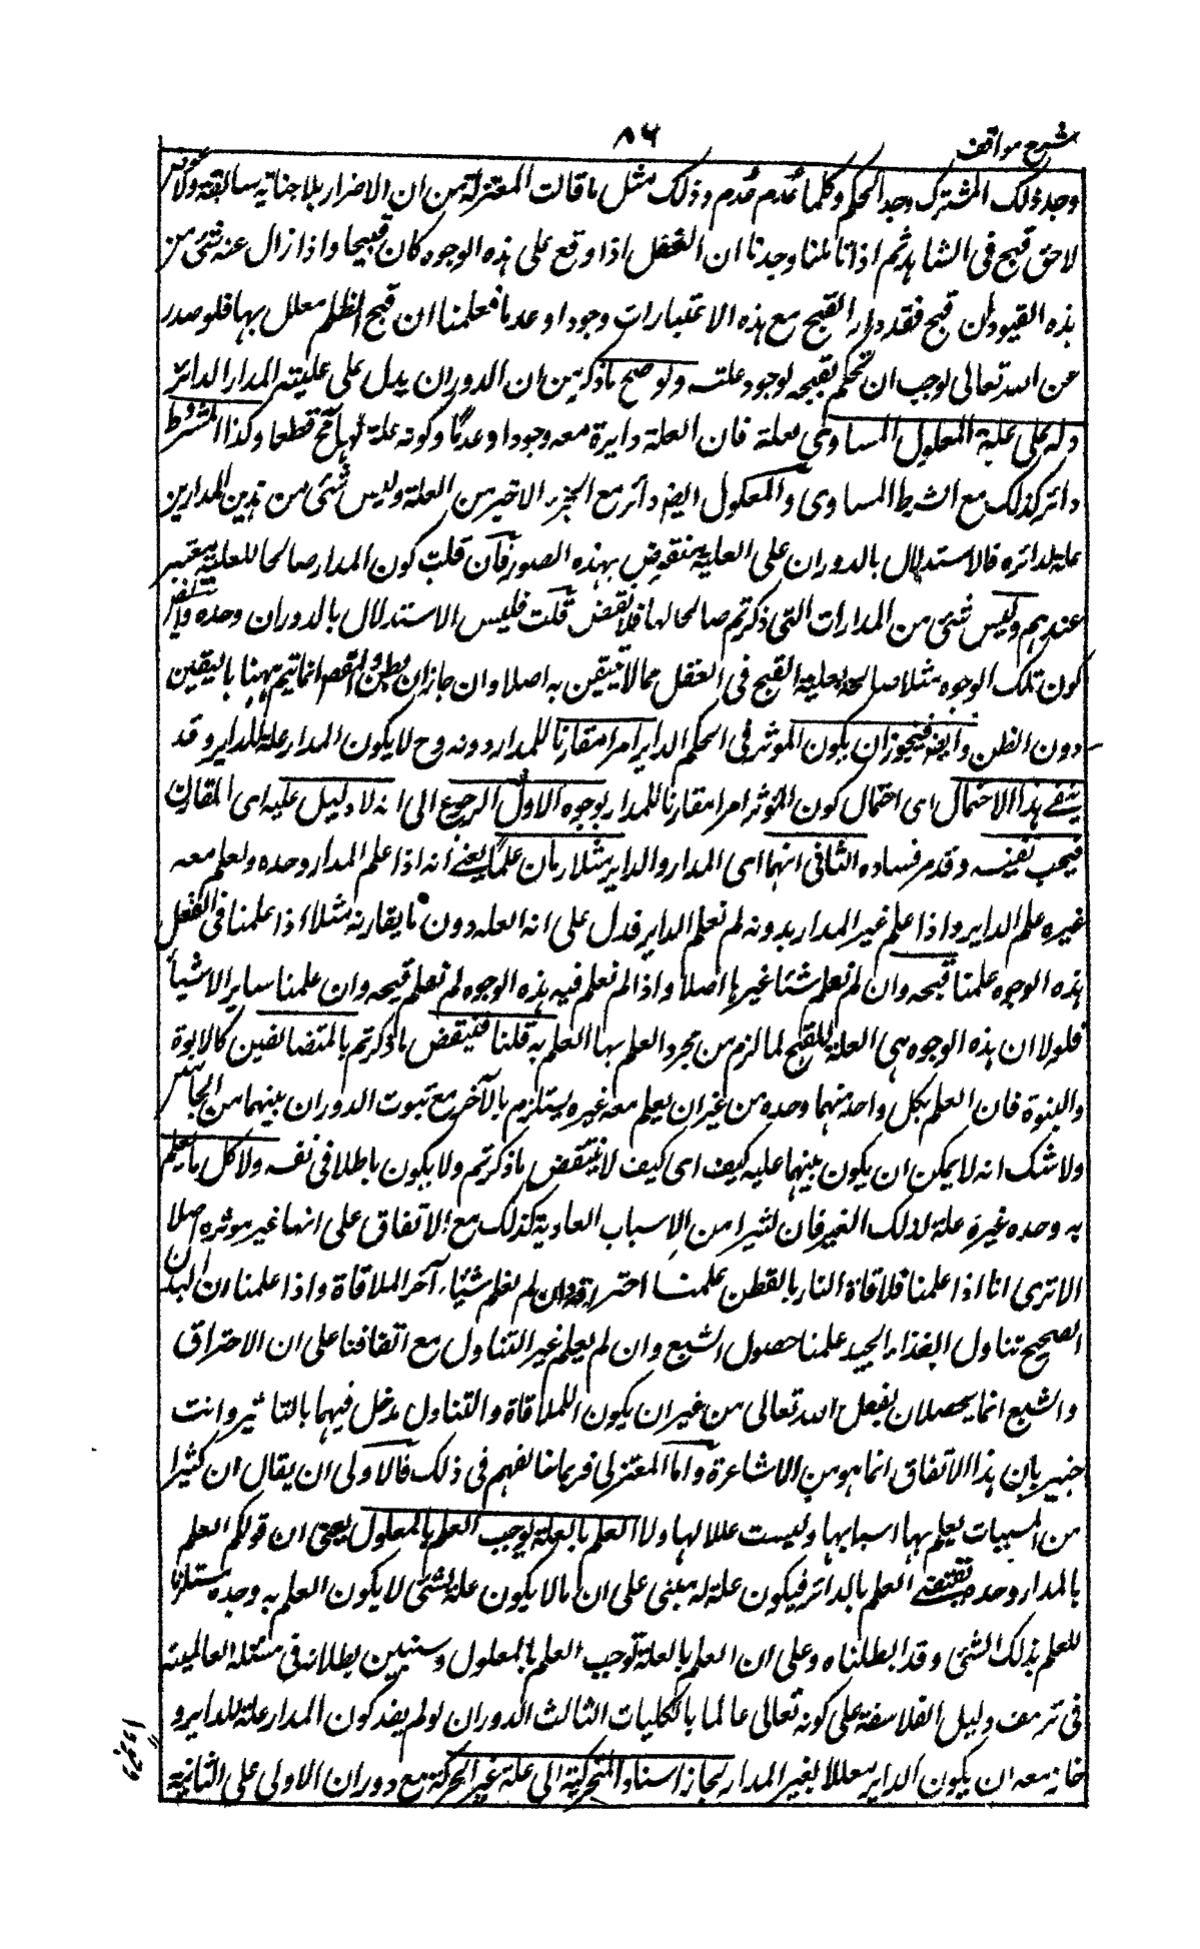 شرح مواقف
٨٦
وجد ذلك المشترك وجد الحكم وكلما عُدم عُدم وذلك مثل ما قالت المعتزلة من ان الاضرار بلا جناية سابقة ولا عوض
لاحق قبيح فى الشاهد ثم اذا تاملنا وجدنا ان الفعل اذا وقع على هذه الوجوه كان قبيحا واذا زال عنه شئ من
هذه القيود لم قبح فقد دار القبح مع هذه الاعتبارات وجودا وعدما فعلمنا ان قبح الظلم معلل بها فلو صدر
عن الله تعالى لوجب ان نحكم بقبحه لوجود علته ولو صح ما ذكر من ان الدوران يدل على علية المدار الدائر
دل على علية المعلول المساوى لعلته فان العلة دايرة معه وجودا وعدمًا وكونه علة لها مح قطعا وكذا المشروط
دائر كذلك مع الشرط المساوى والمعلول ايضا دائر مع الجزء الاخير من العلة وليس شئ من هذين المدارين
علة لدائره فالاستدلال بالدوران على العلية منقوض بهذه الصور فان قلت كون المدار صالحا للعلية معتبر
عندهم وليس شئ من المدارات التى ذكرتم صالحا لها فلا نقض قلت فليس الاستدلال بالدوران وحده وايضا
كون تلك الوجوه مثلا صالحة لعلية القبح فى العقل مما لا تيقن به اصلا وان جاز ان يظن والمقصد انما يتم ههنا باليقين
دون الظن وايضا فيجوز ان يكون الموثر فى الحكم الداير امرا مقارنا للمدار دونه وح لا يكون المدار علة للداير وقد
ينفى هذا الاحتمال اى احتمال كون المؤثر امرا مقارنا للمدار بوجوه الاول الرجوع الى انه لا دليل عليه اى المقارن
فيجب نفيه وقد مر فساده الثانى انهما اى المدار والداير مثلازمان علما يعنى انه اذا علم المدار وحده ولم يعلم معه
غيره علم الداير واذا علم غير المدار بدونه لم نعلم الداير فدل على انه العلة دون ما يقارنه مثلا اذا علمنا فى الفعل
هذه الوجوه علمنا قبحه وان لم نعلم شئا غيرها اصلا واذا لم نعلم فيه هذه الوجوه لم نعلم قبحه وان علمنا ساير الاشيا
فلولا ان هذه الوجوه هى العلة للقبح لما لزم من مجرد العلم بها العلم به قلنا فينتقض ما ذكرتم بالمتضائفين كالابوة
والبنوة فان العلم بكل واحد منهما وحده من غير ان يعلم معه غيره يستلزم بالآخر مع ثبوت الدوران بينهما من الجانبين
ولا شك انه لا يمكن ان يكون بينهما علية كيف اى كيف لا ينتقض ما ذكرتم ولا يكون باطلا فى نفسه ولا كل ما يعلم
به وحده غيره علة لذلك الغير فان كثيرا من الاسباب العادية كذلك مع الاتفاق على انها غير موثره اصلا
الا ترى انا اذا علمنا ملاقاة النار بالقطن علمنا احتراقه وان لم نعلم شيئا آخر الملاقاة واذا علمنا ان البدن
الصحيح تناول الغذاء الجيد علمنا حصول الشبع وان لم يعلم غير التناول مع اتفاقنا على ان الاحتراق
والشبع انما يحصلان بفعل الله تعالى من غير ان يكون للملاقاة والتناول مدخل فيهما بالتاثير وانت
خبير بان هذا الاتفاق انما هو من الاشاعرة واما المعتزلى فربما نخالفهم فى ذلك فالاولى ان يقال ان كثيرا
من المسببات يعلم بها اسبابها وليست عللا لها ولا العلم بالعلة يوجب العلم بالمعلول يعنى ان قولكم العلم
بالمدار وحده يقتضى العلم بالدائر فيكون علة له مبنى على ان ما لا يكون علة لشئ لا يكون العلم به وحده مستلزما
للعلم بذلك الشئ وقد ابطلناه وعلى ان العلم بالعلة توجب العلم بالمعلول وسنبين بطلانه فى مسئلة العالمية
فى تزييف دليل الفلاسفة على كونه تعالى عالما بالكليات الثالث الدوران لو لم يفد كون المدار علة للداير و
جاز معه ان يكون الداير معللا بغير المدار لجاز اسناد المتحركية الى علة غير الحركة مع دوران الاولى على الثانية